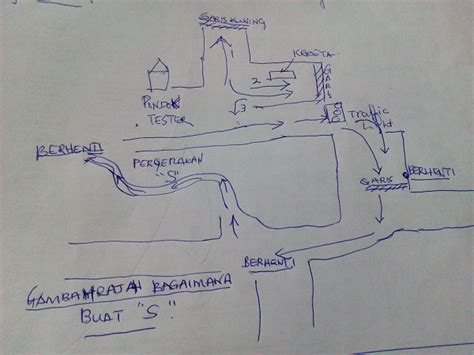 GARIS KUNING
1
KERETA
2
GARIS
3
PONDOK
TESTER
Traffic
Light
BERHENTI
PERGERAKAN
"S"
BERHENTI
GARIS
BERHENTI
GAMBARAJAH BAGAIMANA
BUAT "S".